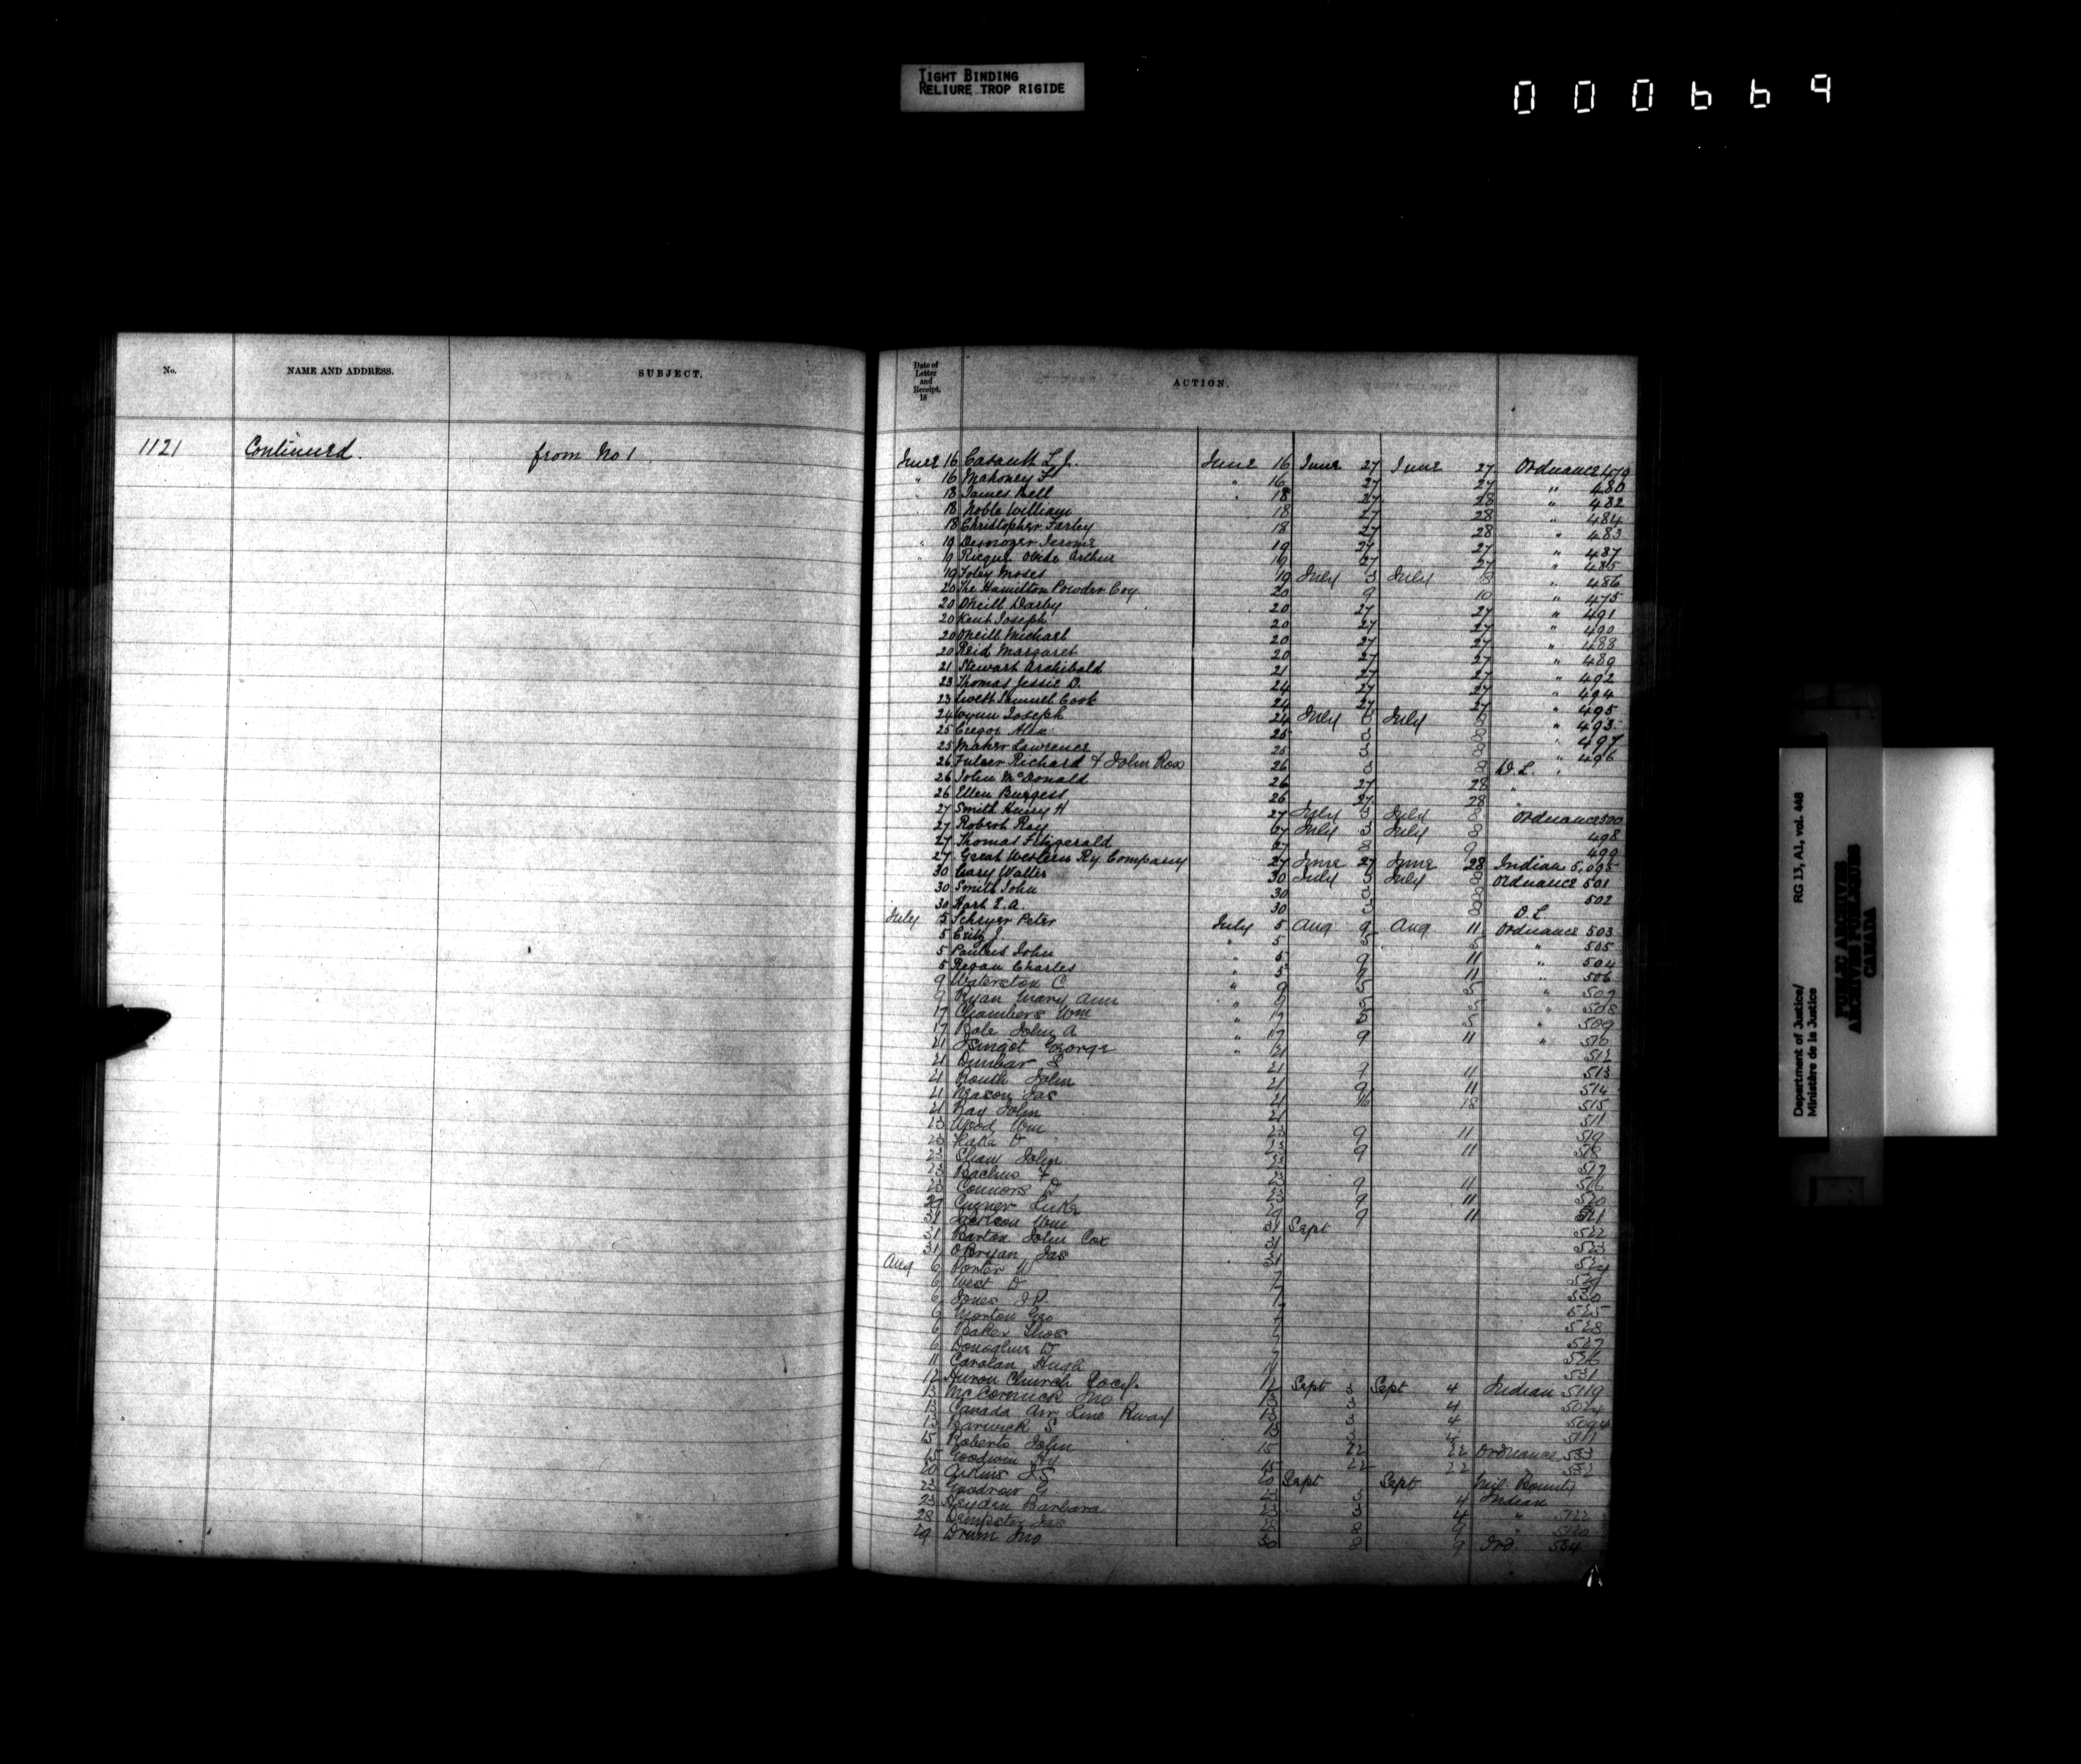 TIGHT BINDING
RELIURE TROP RIGIDE
000669
No. NAME AND ADDRESS. SUBJECT.
Date of Letter and Receipt, 18 ACTION.
1121 Continued. from No 1
June 16 Casault L. J. June 16 June 27 June 27 Ordnance 479
" 16 Mahoney F " 16 27 27 " 480
18 James Bell 18 27 28 " 482
18 Noble William 18 27 28 " 484
18 Christopher Farley 18 27 28 " 483
" 19 Jerome 19 27 27 " 487
Arthur 19 27 27 " 485
19 Foley Moses 19 July 3 July 8 " 486
20 The Hamilton Powder Coy 20 9 10 " 475
20 Oneill Darby 20 27 27 " 491
20 Kent Joseph 20 27 27 " 490
20 Oneill Michael 20 27 27 " 488
20 Reid Margaret 20 27 27 " 489
21 Stewart Archibald 21 27 27 " 492
23 Thomas Jessie D. 24 27 27 " 494
23 Samuel Cook 24 27 27 " 495
24 Wynn Joseph 24 July July " 493
25 Alex 25 3 8 " 497
25 Maher Lawrence 25 3 8 " 496
26 Richard & John Ross 26 3 8 D. L.
26 John McDonald 26 27 28 "
26 Ellen Burgess 26 27 28 "
27 Smith Henry H 27 July 3 July 8 Ordnance 500
27 Robert Ray 27 July 3 July 8 498
27 Thomas Fitzgerald 27 8 9 499
27 Great Western Ry Company 27 June 27 June 28 Indian 5,095
30 Cary Walter 30 July 3 July 8 Ordnance 501
30 Smith John 30 3 8 502
30 Hart I. A. 30 3 8 D. L
July 5 Schryer Peter July 5 Aug 9 Aug 11 Ordnance 503
5 J. " 5 5 5 " 505
5 John " 5 9 11 " 504
5 Regan Charles " 5 9 11 " 506
9 Waterston C " 9 5 5 " 507
9 Ryan Mary Ann " 9 5 5 508
17 Chambers Wm " 17 5 5 " 509
17 Bole John A " 17 9 11 " 510
21 George " 21 512
21 Dunbar S 21 9 11 513
21 Routh John 21 9 11 514
21 Jas 21 16 18 515
21 Ray John 21 511
23 Wood Wm 23 9 11 519
23 D 23 9 11 518
23 Shaw John 23 517
23 F 23 9 11 516
23 Connors D 23 9 11 520
29 Luke 29 9 11 521
31 Jackson Wm 31 Sept 522
31 Barton John Cox 31 523
31 OBryan Jas 31 524
Aug 6 Porter W 7 529
6 West D 7 530
6 Jones J P. 7 525
6 Morton Geo 7 528
6 Baker Thos 7 527
6 Donaghue D 7 526
11 Carolan Hugh 11 531
12 Huron Church Socy. 12 Sept 3 Sept 4 Indian 5119
13 McCormick Jno 13 3 4
13 Canada Air Line Rway 13 3 4 5094
13 Barwick S 13 3 4 5111
15 Roberts John 15 22 22 Ordnance 533
15 Goodwin Hy 15 22 22 532
20 Atkins J S 20 Sept Sept Mil. Bounty
23 Goodrow G 23 3 4 Indian
23 Hayden Barbara 23 3 4 " 5122
28 Dempster Jas 28 8 9 " 5120
29 Drum Jno 30 8 9 Ord. 534
Department of Justice/ RG 13, A1, vol. 448
Ministère de la Justice
PUBLIC ARCHIVES
ARCHIVES PUBLIQUES
CANADA